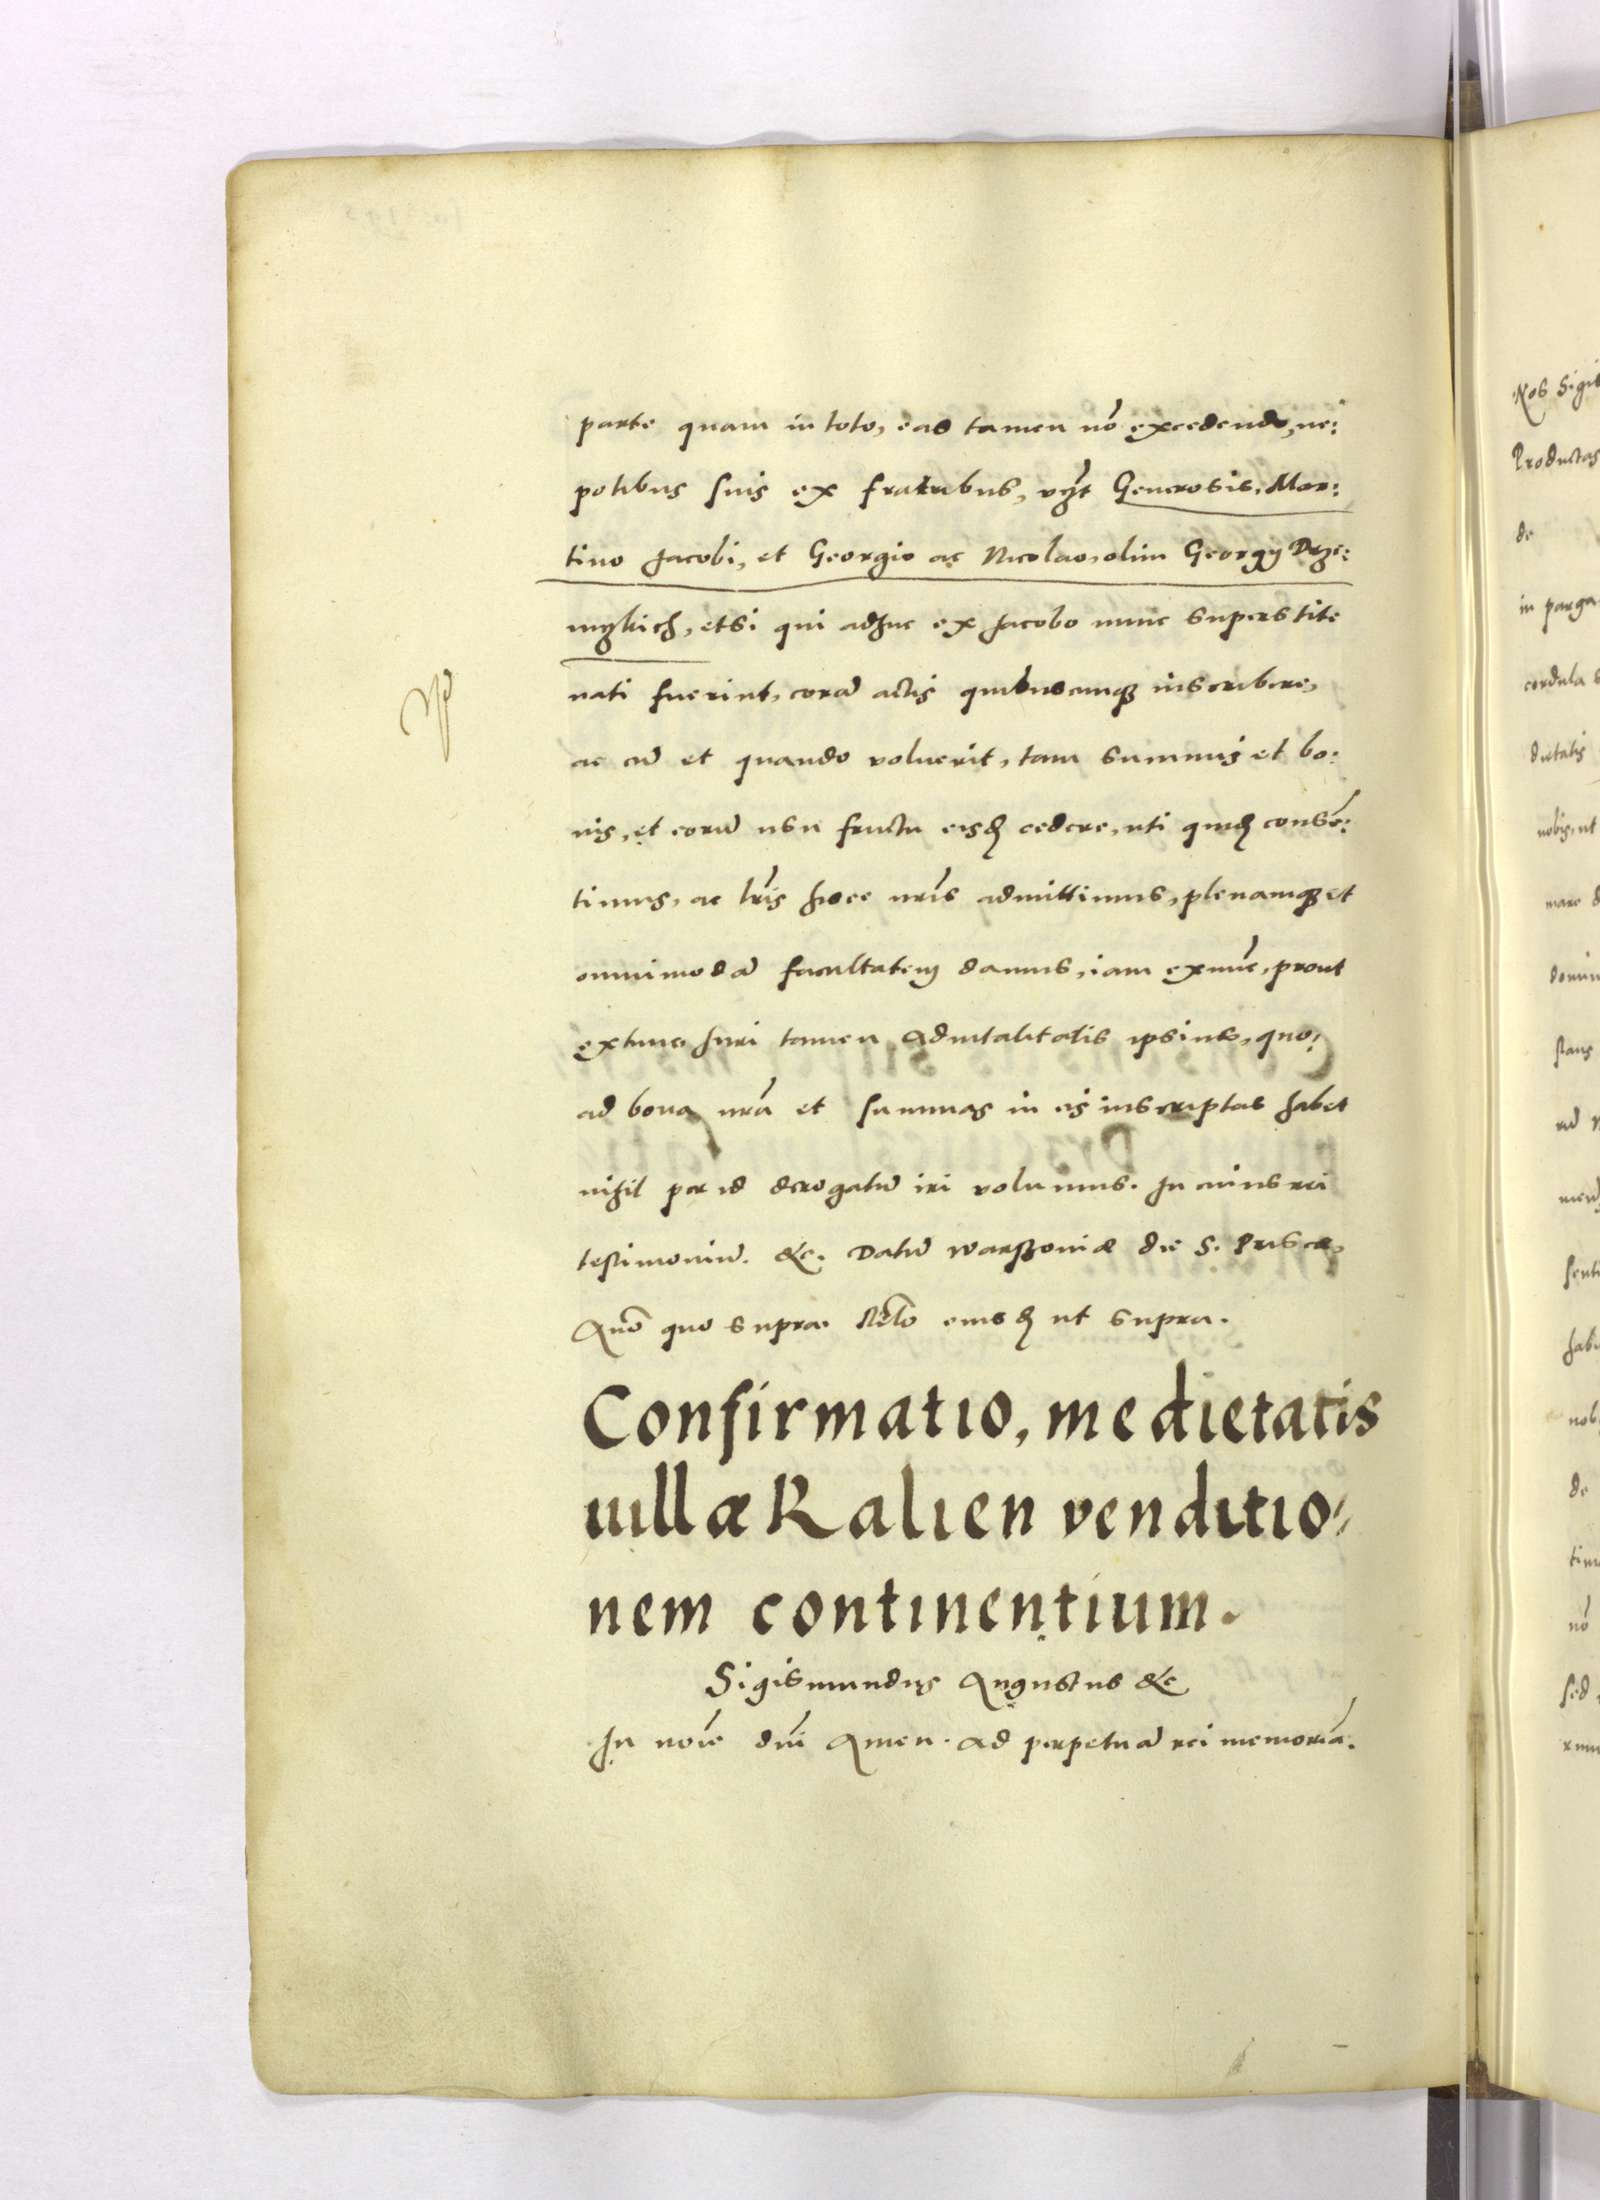 parte quam in toto, eas tamen nõ excedendo, ne:
potibus suis ex fratribus, vĳt Generosis, Mar:
tino Jacobi, et Georgio ac Nicolao, olim Georgij Drze:
mlkich, etsi qui adhuc ex Jacobo nunc superstite
nati fuerint, corã actis quibuscunqȝ inscribere,
ac cũ et quando voluerit, tam summis et bo:
nis, et eorũ usu fructu eisđ cedere, uti quiđ consẽ:
timus, ac lr̃is hisce nr̃is admittimus, plenamqȝ et
omnimodã facultatem damus, iam exnũc, prout
extunc, Juri tamen Advitalitatis ipsius, quo:
ad bona nr̃a et summas in eis inscriptas habet
nihil per id derogatũ iri volumus. In cuius rei
testimoniũ. &c. Datũ Warszoviæ die S. Priscæ,
Anõ quo supra. Relõ eiusđ ut supra.
Confirmatio, medietatis
uillæ Kalien venditio=
nem continentium.
Sigismundus Augustus &c
In noĩe dñi Amen. Ad perpetuã rei memoriã.
Nos Sigis
Productas
de
in parga
cordula s
dietatis
nobis, ut
mare d
domin
stans
rũ
senti
habi
nob
de
tim
nõ
sed